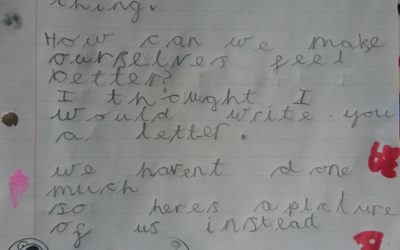 thing.
How can we make
ourselves feel
better?
I thought I
would write you
a letter.
we havent done
much
so heres a picture
of us instead